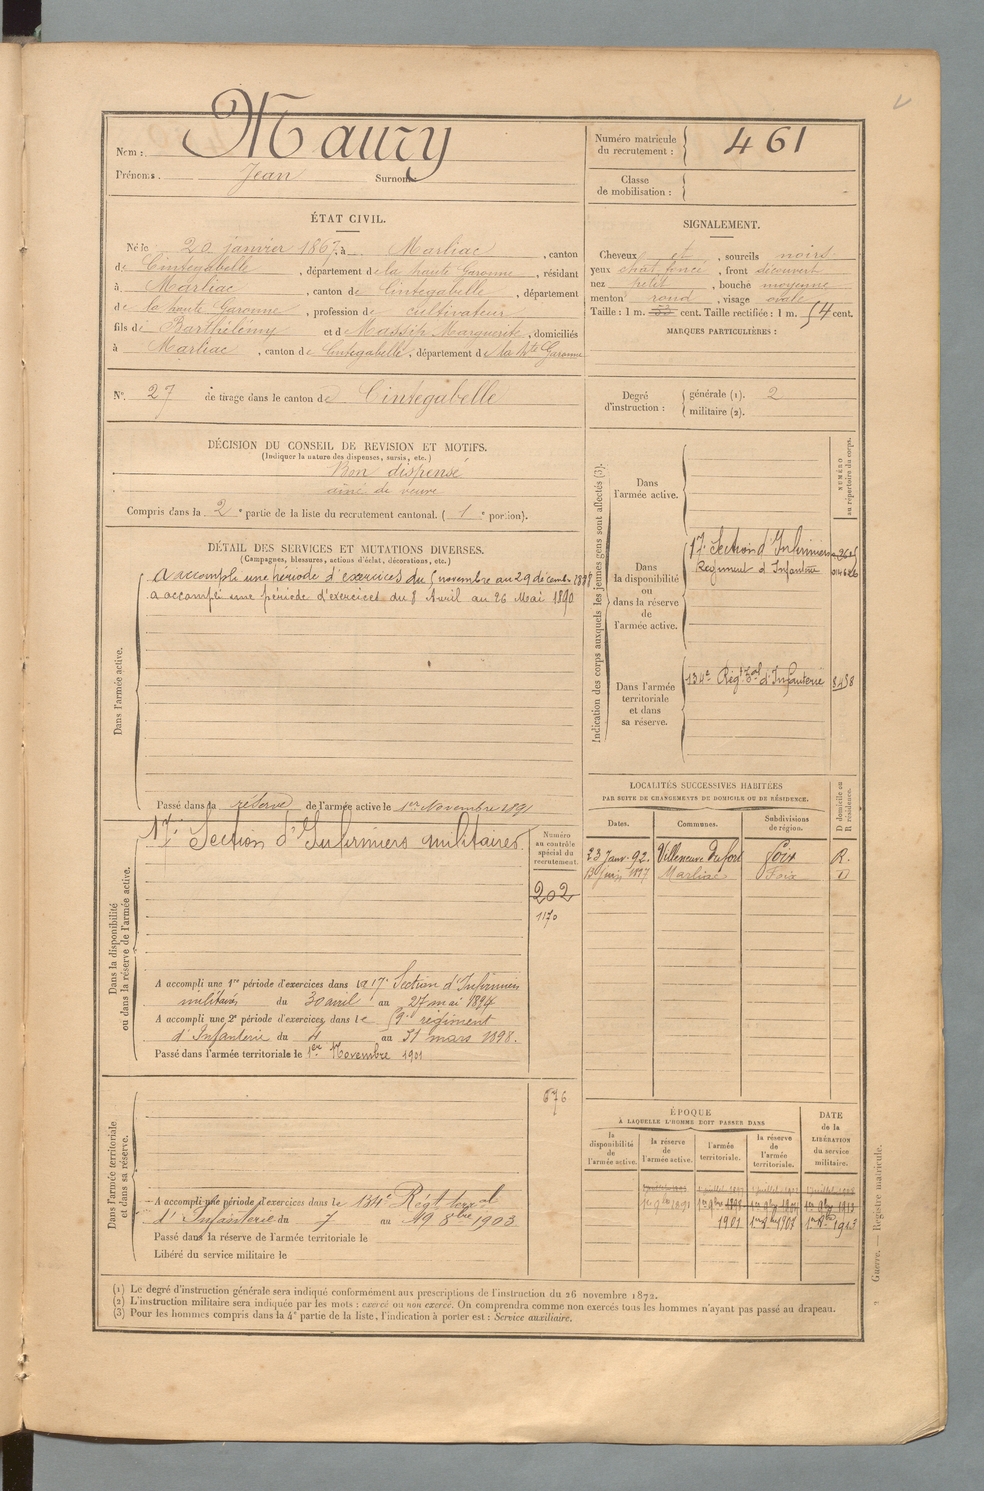 Nom : Maury
Prénoms : Jean Surnoms
Numéro matricule du recrutement : 461
Classe de mobilisation :
ÉTAT CIVIL.
Né le 20 janvier 1867, à Marliac, canton
de Cintegabelle, département de la haute Garonne, résidant
à Marliac, canton de Cintegabelle, département
de la haute Garonne, profession de cultivateur
fils de Barthélemy et de Massip Marguerite, domiciliés
à Marliac, canton de Cintegabelle, département de la hte Garonne
SIGNALEMENT.
Cheveux et, sourcils noirs
yeux chat. foncé, front découvert
nez petit, bouche moyenne
menton rond, visage ovale
Taille : 1 m. 53 cent. Taille rectifiée : 1 m. 54 cent.
MARQUES PARTICULIÈRES :
N° 27 de tirage dans le canton de Cintegabelle
Degré d'instruction :
générale (1). 2
militaire (2).
DÉCISION DU CONSEIL DE REVISION ET MOTIFS.
(Indiquer la nature des dispenses, sursis, etc.)
Bon dispensé
ainé de veuve
Compris dans la 2e partie de la liste du recrutement cantonal. (1e portion).
DÉTAIL DES SERVICES ET MUTATIONS DIVERSES.
(Campagnes, blessures, actions d'éclat, décorations, etc.)
Dans l'armée active.
A accompli une période d'exercices du 5 novembre au 29 décembre
a accompli une période d'exercices du 8 Avril au 26 Mai 1890
Passé dans la réserve de l'armée active le 1er Novembre 1891
Indication des corps auxquels les jeunes gens sont affectés (3).
NUMÉRO au répertoire du corps.
Dans l'armée active.
Dans la disponibilité ou dans la réserve de l'armée active.
17e Section d'Infirmiers
Régiment d'Infanterie
Dans l'armée territoriale et dans sa réserve.
134e Régt Tal d'Infanterie
Dans la disponibilité ou dans la réserve de l'armée active.
17e Section d'Infirmiers militaires.
Numéro au contrôle spécial du recrutement.
202
1170
A accompli une 1re période d'exercices dans la 17e Section d'Infirmiers
militaires du 30 avril au 27 mai 1894
A accompli une 2e période d'exercices dans le 59e régiment
d'Infanterie du 4 au 31 mars 1898.
Passé dans l'armée territoriale le 1er Novembre 1901
LOCALITÉS SUCCESSIVES HABITÉES
PAR SUITE DE CHANGEMENTS DE DOMICILE OU DE RÉSIDENCE.
Dates. Communes. Subdivisions de région. D domicile ou R résidence.
23 Janv. 92. Villeneuve Foix R.
13 Juin 1897 Marliac Foix D
Dans l'armée territoriale et dans sa réserve.
676
A accompli une période d'exercices dans le 134e Régt teral
d'Infanterie du 7 au 19 8bre 1903
Passé dans la réserve de l'armée territoriale le
Libéré du service militaire le
ÉPOQUE
À LAQUELLE L'HOMME DOIT PASSER DANS
la disponibilité de l'armée active.
la réserve de l'armée active.
l'armée territoriale.
la réserve de l'armée territoriale.
DATE de la LIBÉRATION du service militaire.
1er 9bre 1891
1901 1er 9bre 1907 1913
(1) Le degré d'instruction générale sera indiqué conformément aux prescriptions de l'instruction du 26 novembre 1872.
(2) L'instruction militaire sera indiquée par les mots : exercé ou non exercé. On comprendra comme non exercés tous les hommes n'ayant pas passé au drapeau.
(3) Pour les hommes compris dans la 4e partie de la liste, l'indication à porter est : Service auxiliaire.
Guerre. — Registre matricule.